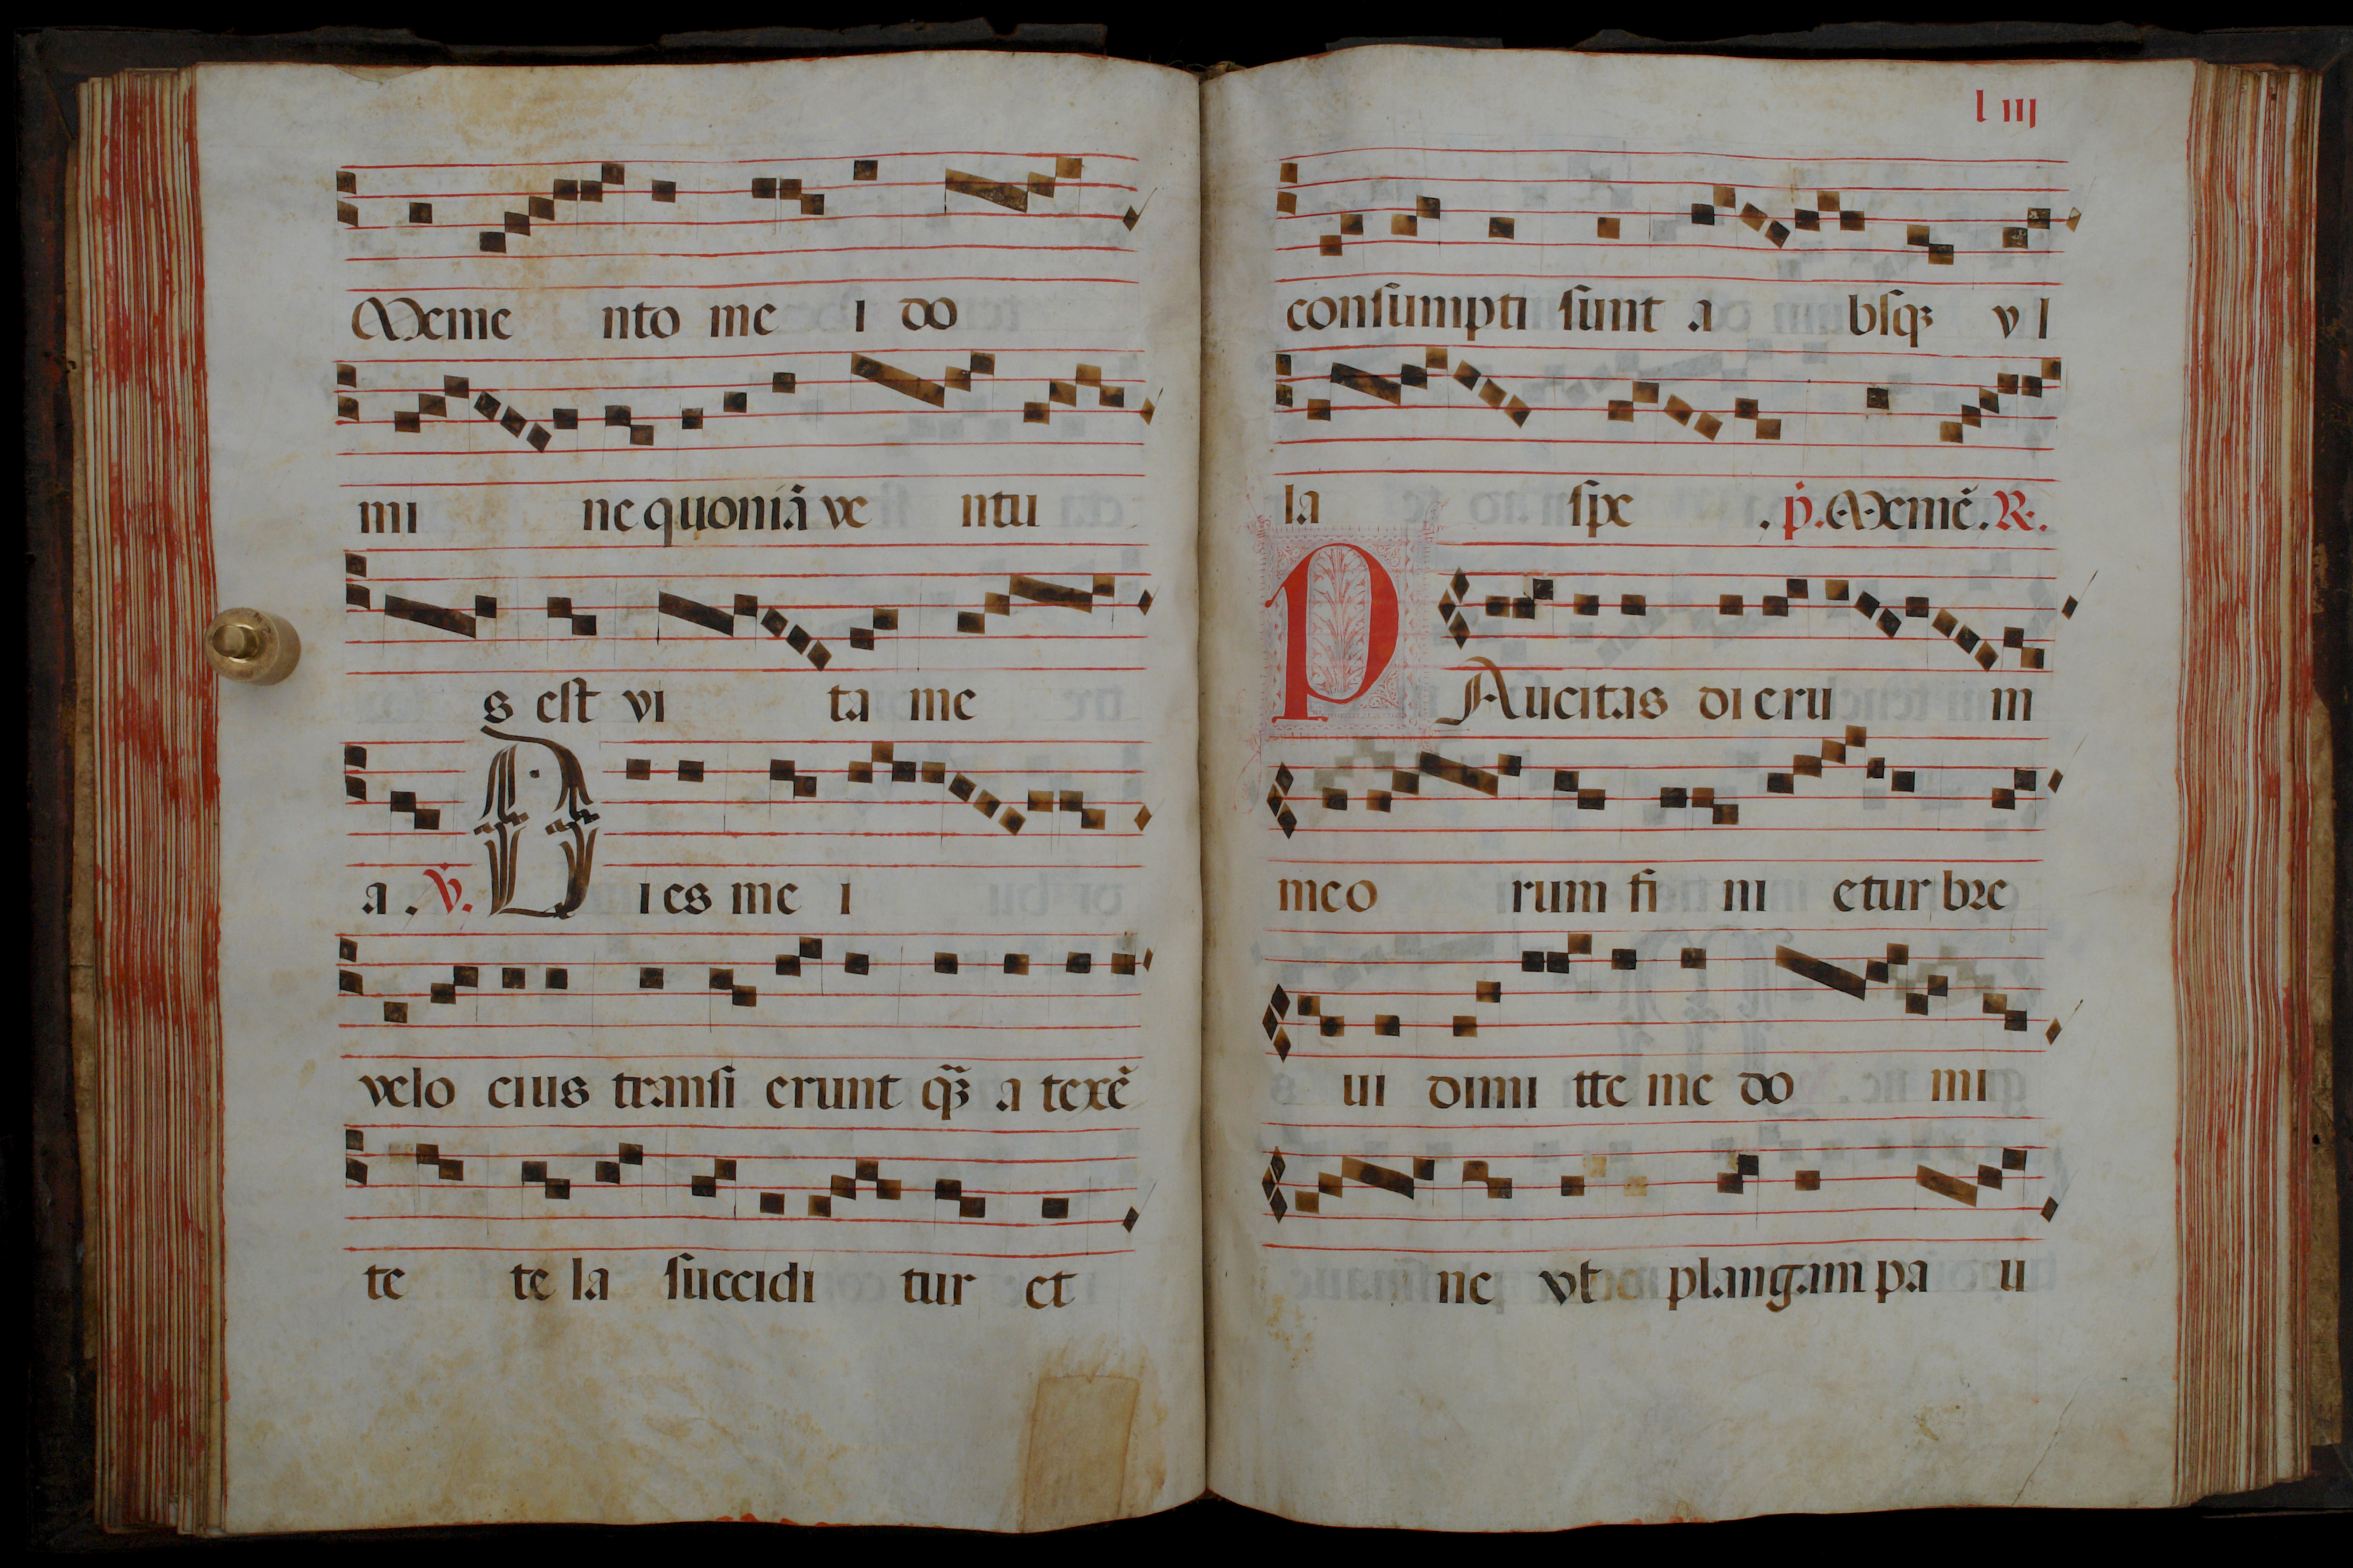 Meme nto me i do
mi ne quoniā ve ntu
s est vi ta me
a . V. Dies me i
velo cius transi erunt qȝ̄ a texē
te te la succidi tur et
l iij
consumpti sunt a bsqȝ vl
la spe . p. Memē. R.
PAucitas dieru m
meo rum fi ni etur bre
ui dimi tte me do mi
ne vt plangam pa u